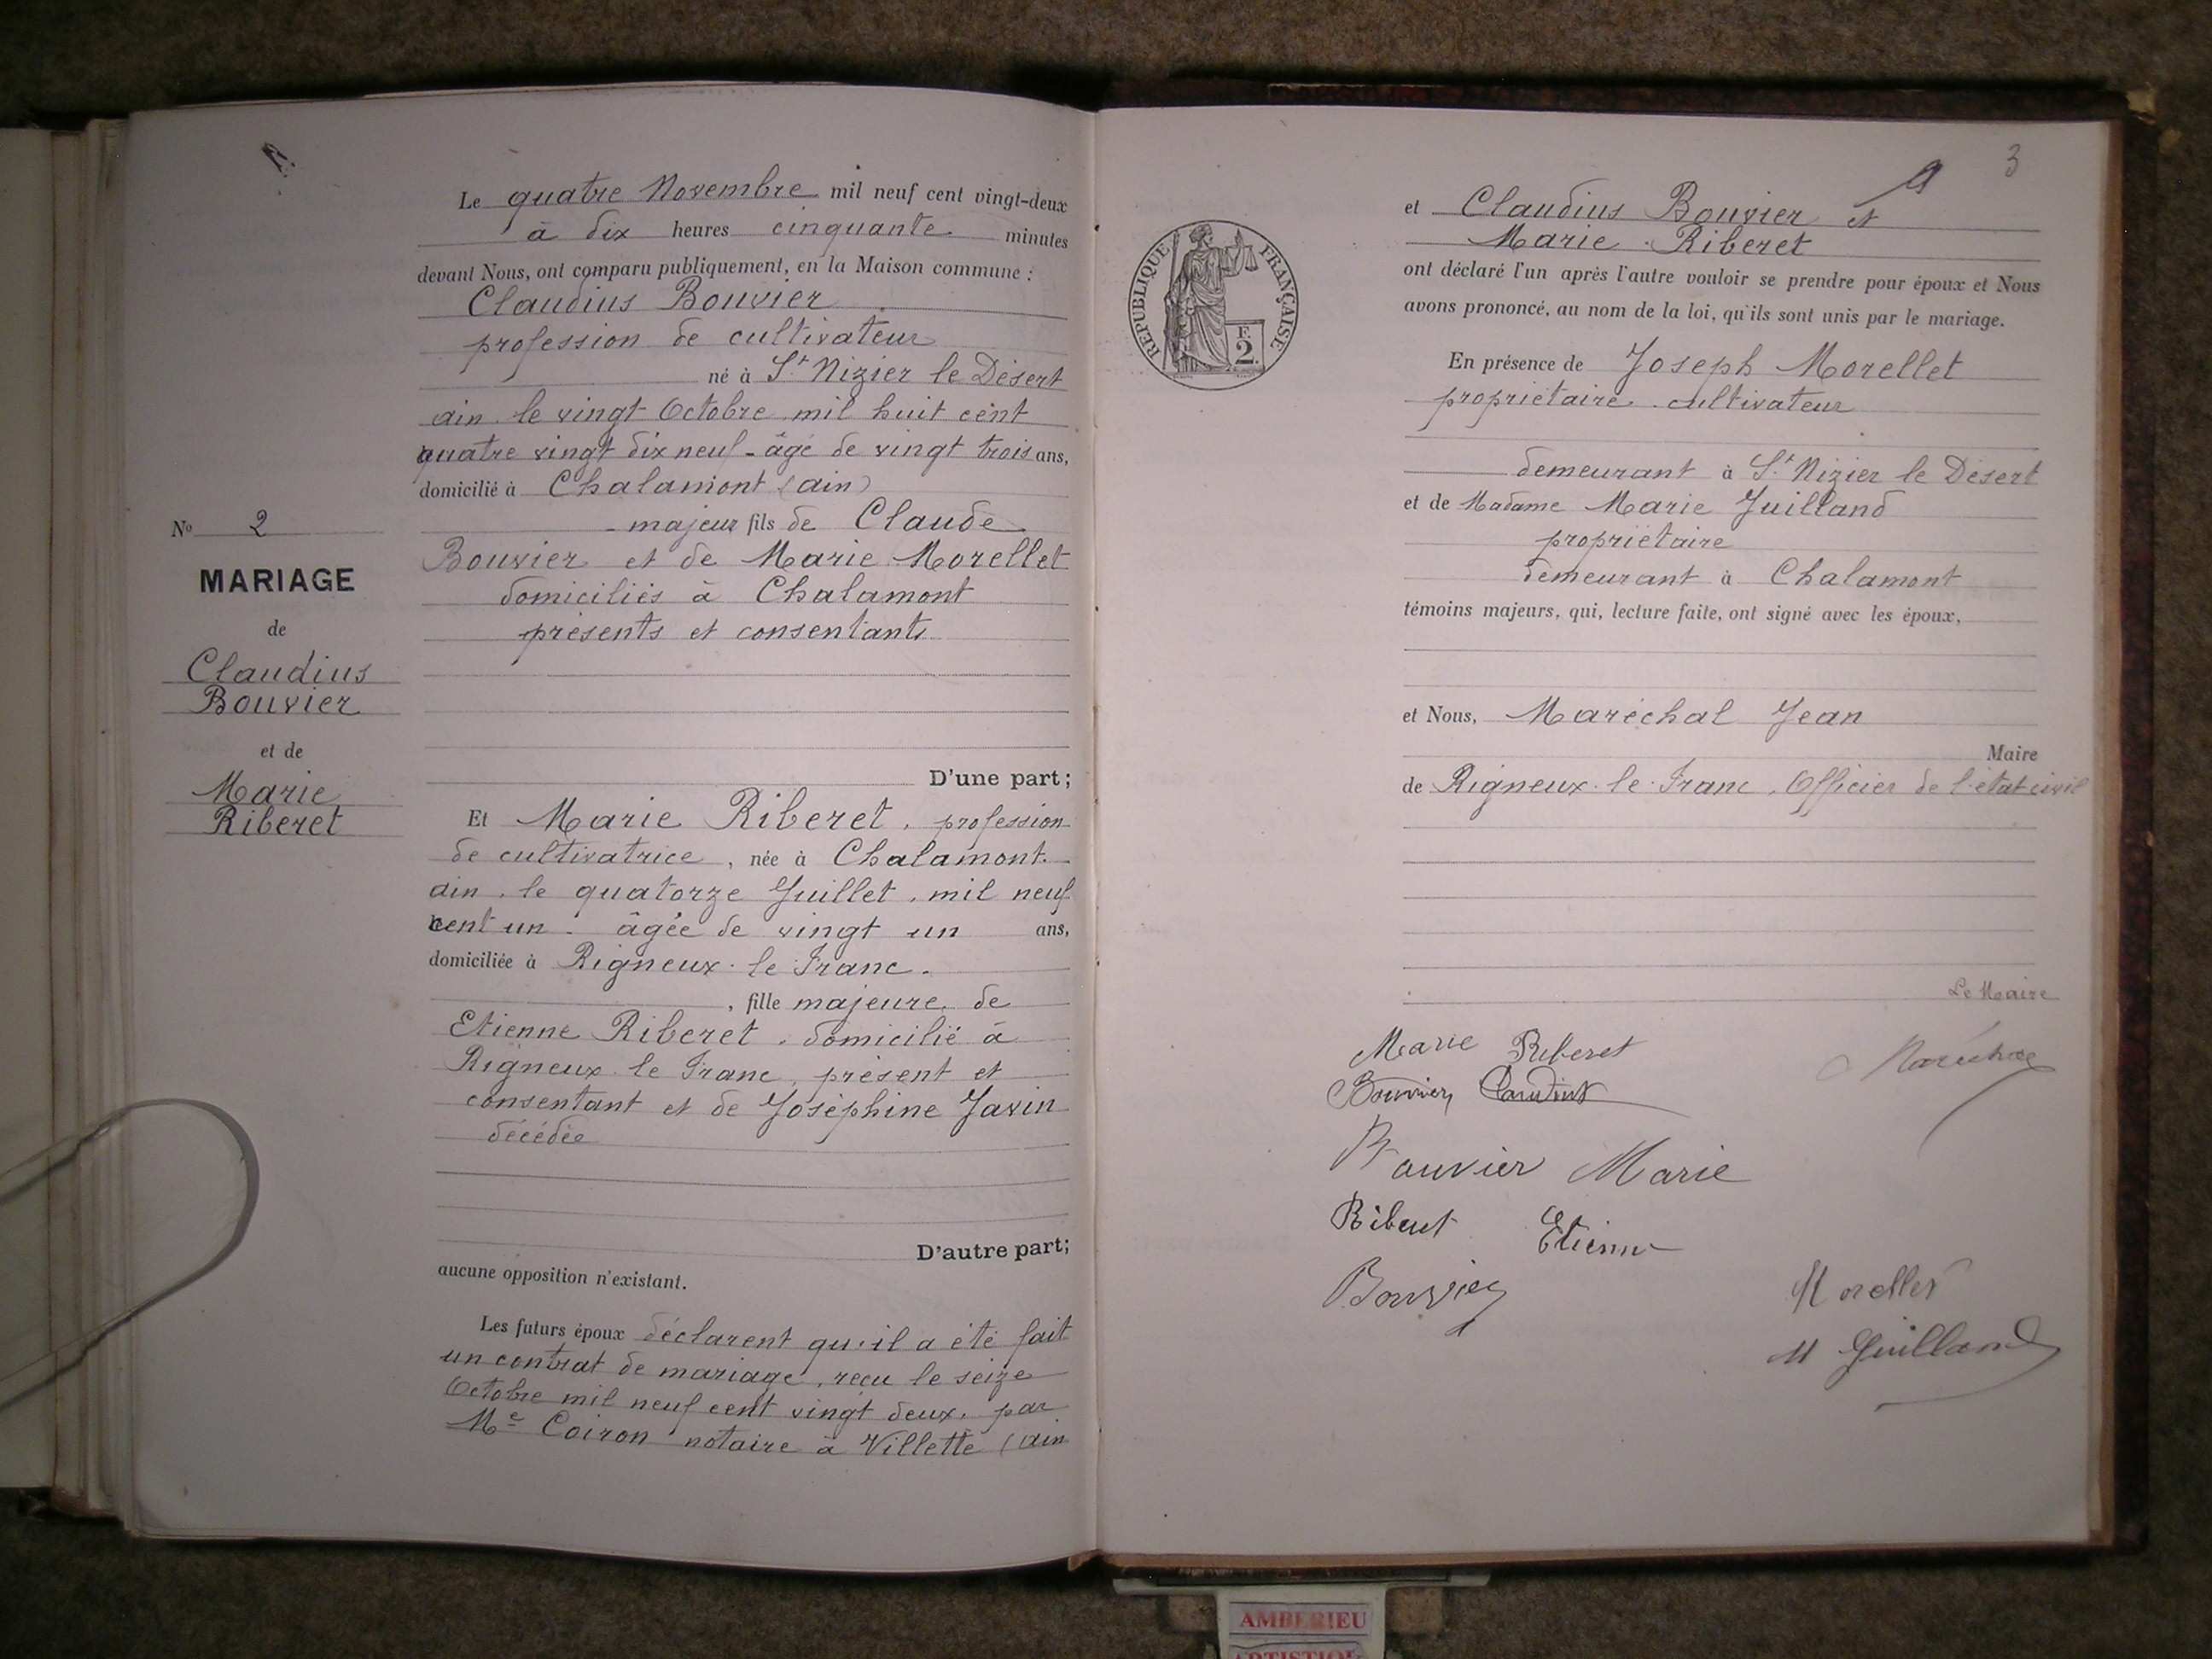 Le quatre Novembre mil neuf cent vingt-deux
à dix heures cinquante minutes
devant Nous, ont comparu publiquement, en la Maison commune :
Claudius Bouvier
profession de cultivateur
né à St Nizier le Désert
ain le vingt Octobre mil huit cent
quatre vingt dix neuf - âgé de vingt trois ans,
domicilié à Chalamont (ain)
majeur fils de Claude
Bouvier et de Marie Morellet
domiciliés à Chalamont
présents et consentants
D'une part;
No 2
MARIAGE
de
Claudius
Bouvier
et de
Marie
Riberet
Et Marie Riberet, profession
de cultivatrice, née à Chalamont
ain, le quatorze Juillet, mil neuf
cent un - âgée de vingt un ans,
domiciliée à Rigneux-le-Franc.
, fille majeure de
Etienne Riberet, domicilié à
Rigneux le Franc, présent et
consentant et de Joséphine Javin
décédée
D'autre part;
aucune opposition n'existant.
Les futurs époux déclarent qu'il a été fait
un contrat de mariage, reçu le seize
Octobre mil neuf cent vingt deux, par
Me Coiron notaire à Villette (ain
3
REPUBLIQUE FRANÇAISE
F.
2
et Claudius Bouvier et
Marie Riberet
ont déclaré l'un après l'autre vouloir se prendre pour époux et Nous
avons prononcé, au nom de la loi, qu'ils sont unis par le mariage.
En présence de Joseph Morellet
propriétaire cultivateur
demeurant à St Nizier le Désert
et de Madame Marie Juilland
propriétaire
demeurant à Chalamont
témoins majeurs, qui, lecture faite, ont signé avec les époux,
et Nous, Maréchal Jean
Maire
de Rigneux-le-Franc, Officier de l'état civil
Le Maire
Marie Riberet
Maréchal
Bouvier Claudius
Bouvier Marie
Riberet Etienne
Bouvier
Morellet
M Juilland
AMBERIEU